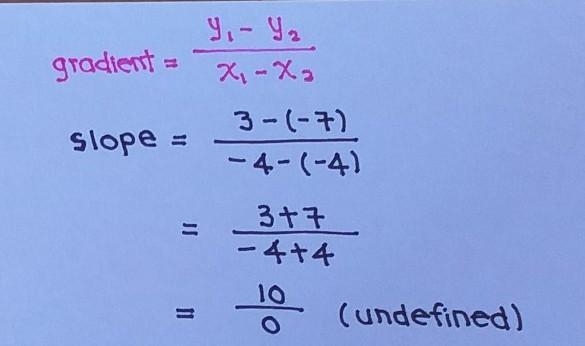 gradient = y₁ - y₂ / x₁ - x₂
slope = 3 - (-7) / -4 - (-4)
= 3 + 7 / -4 + 4
= 10 / 0 (undefined)